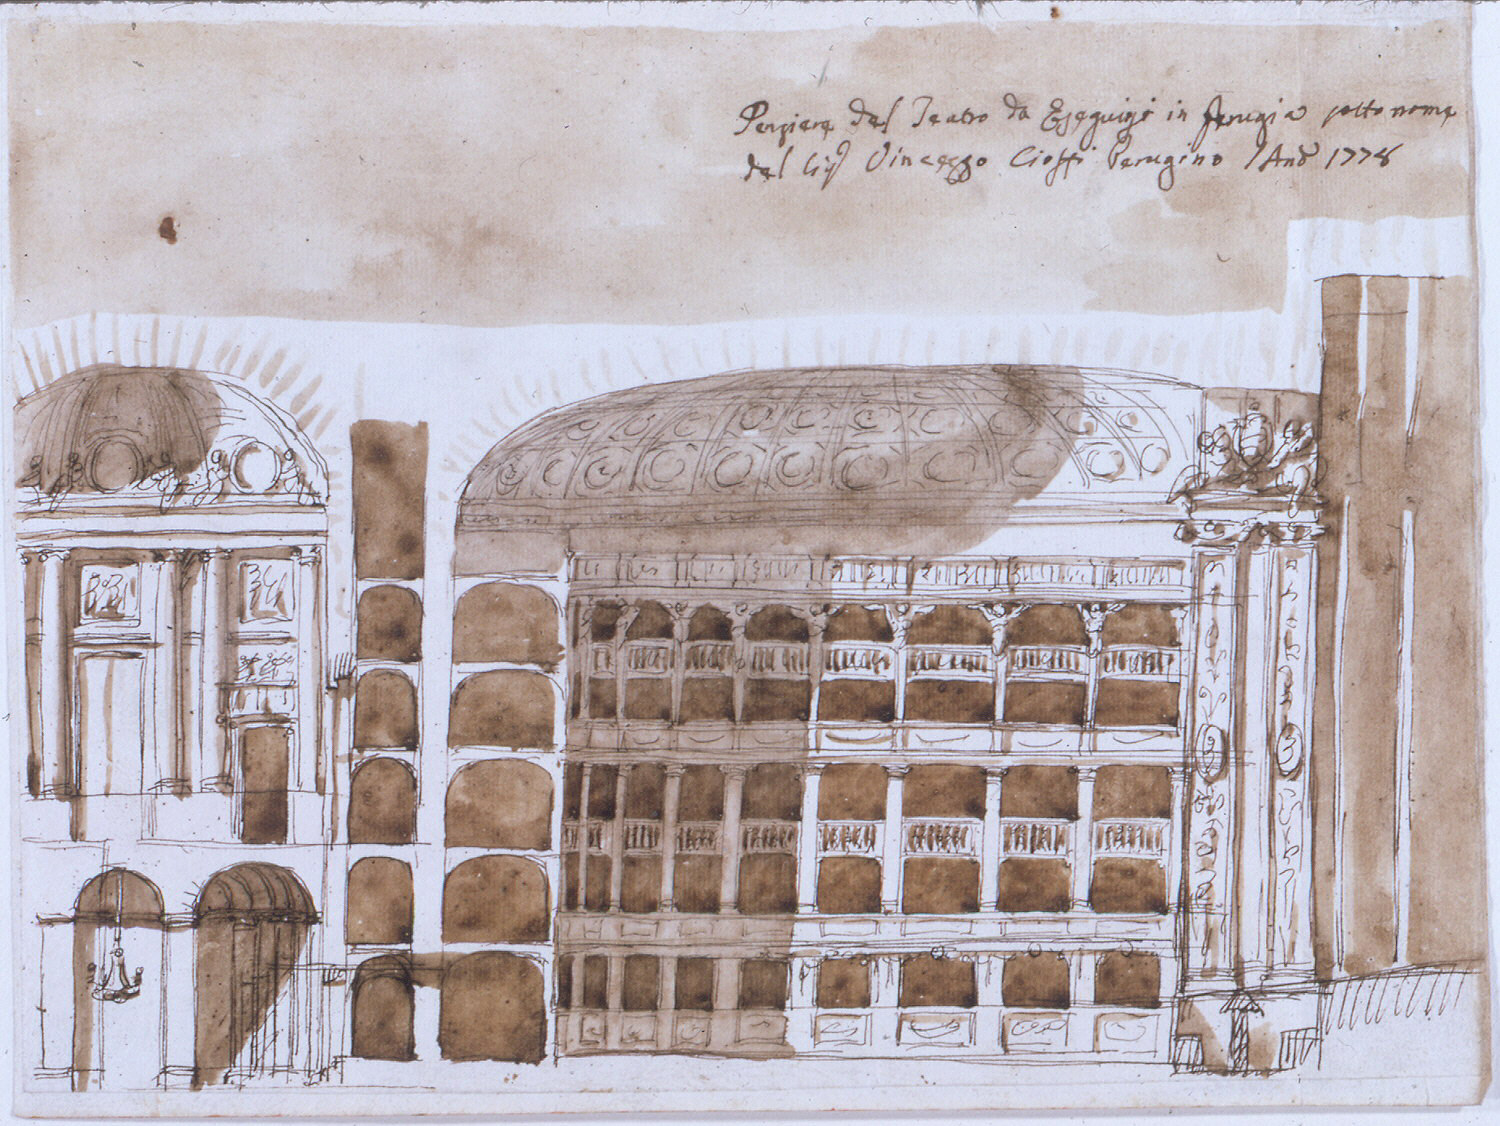 Pensiere del Teatro da Eseguirsi in Perugia sotto nome
del Sig Vincenzo Cioffi Perugino l'Anº 1778